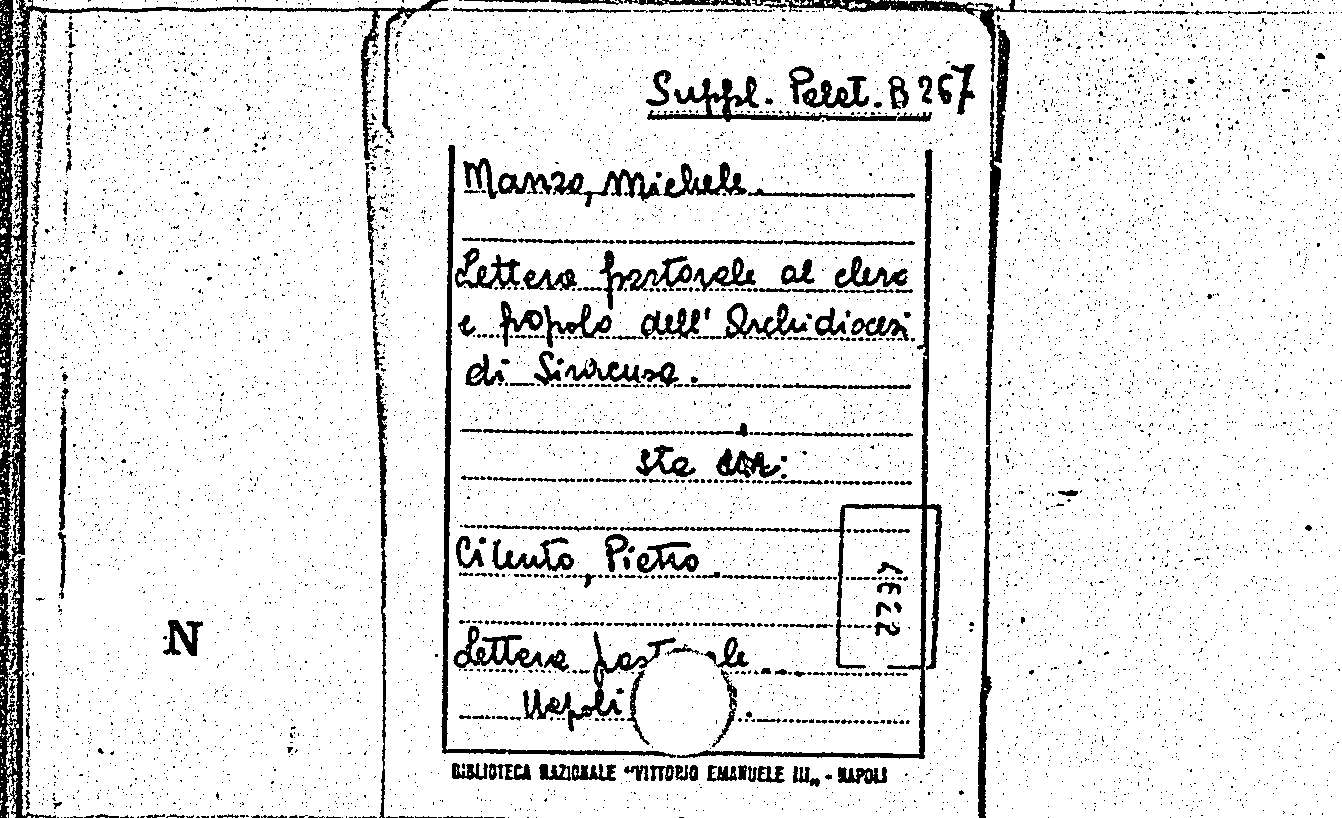 Suppl. Palat. B 267
Manzo, Michele.
Lettera pastorale al clero
e popolo dell' Archidiocesi
di Siracusa.
sta con:
Cilento, Pietro.
Lettera pastorale
Napoli
N
BIBLIOTECA NAZIONALE "VITTORIO EMANUELE III„ - NAPOLI